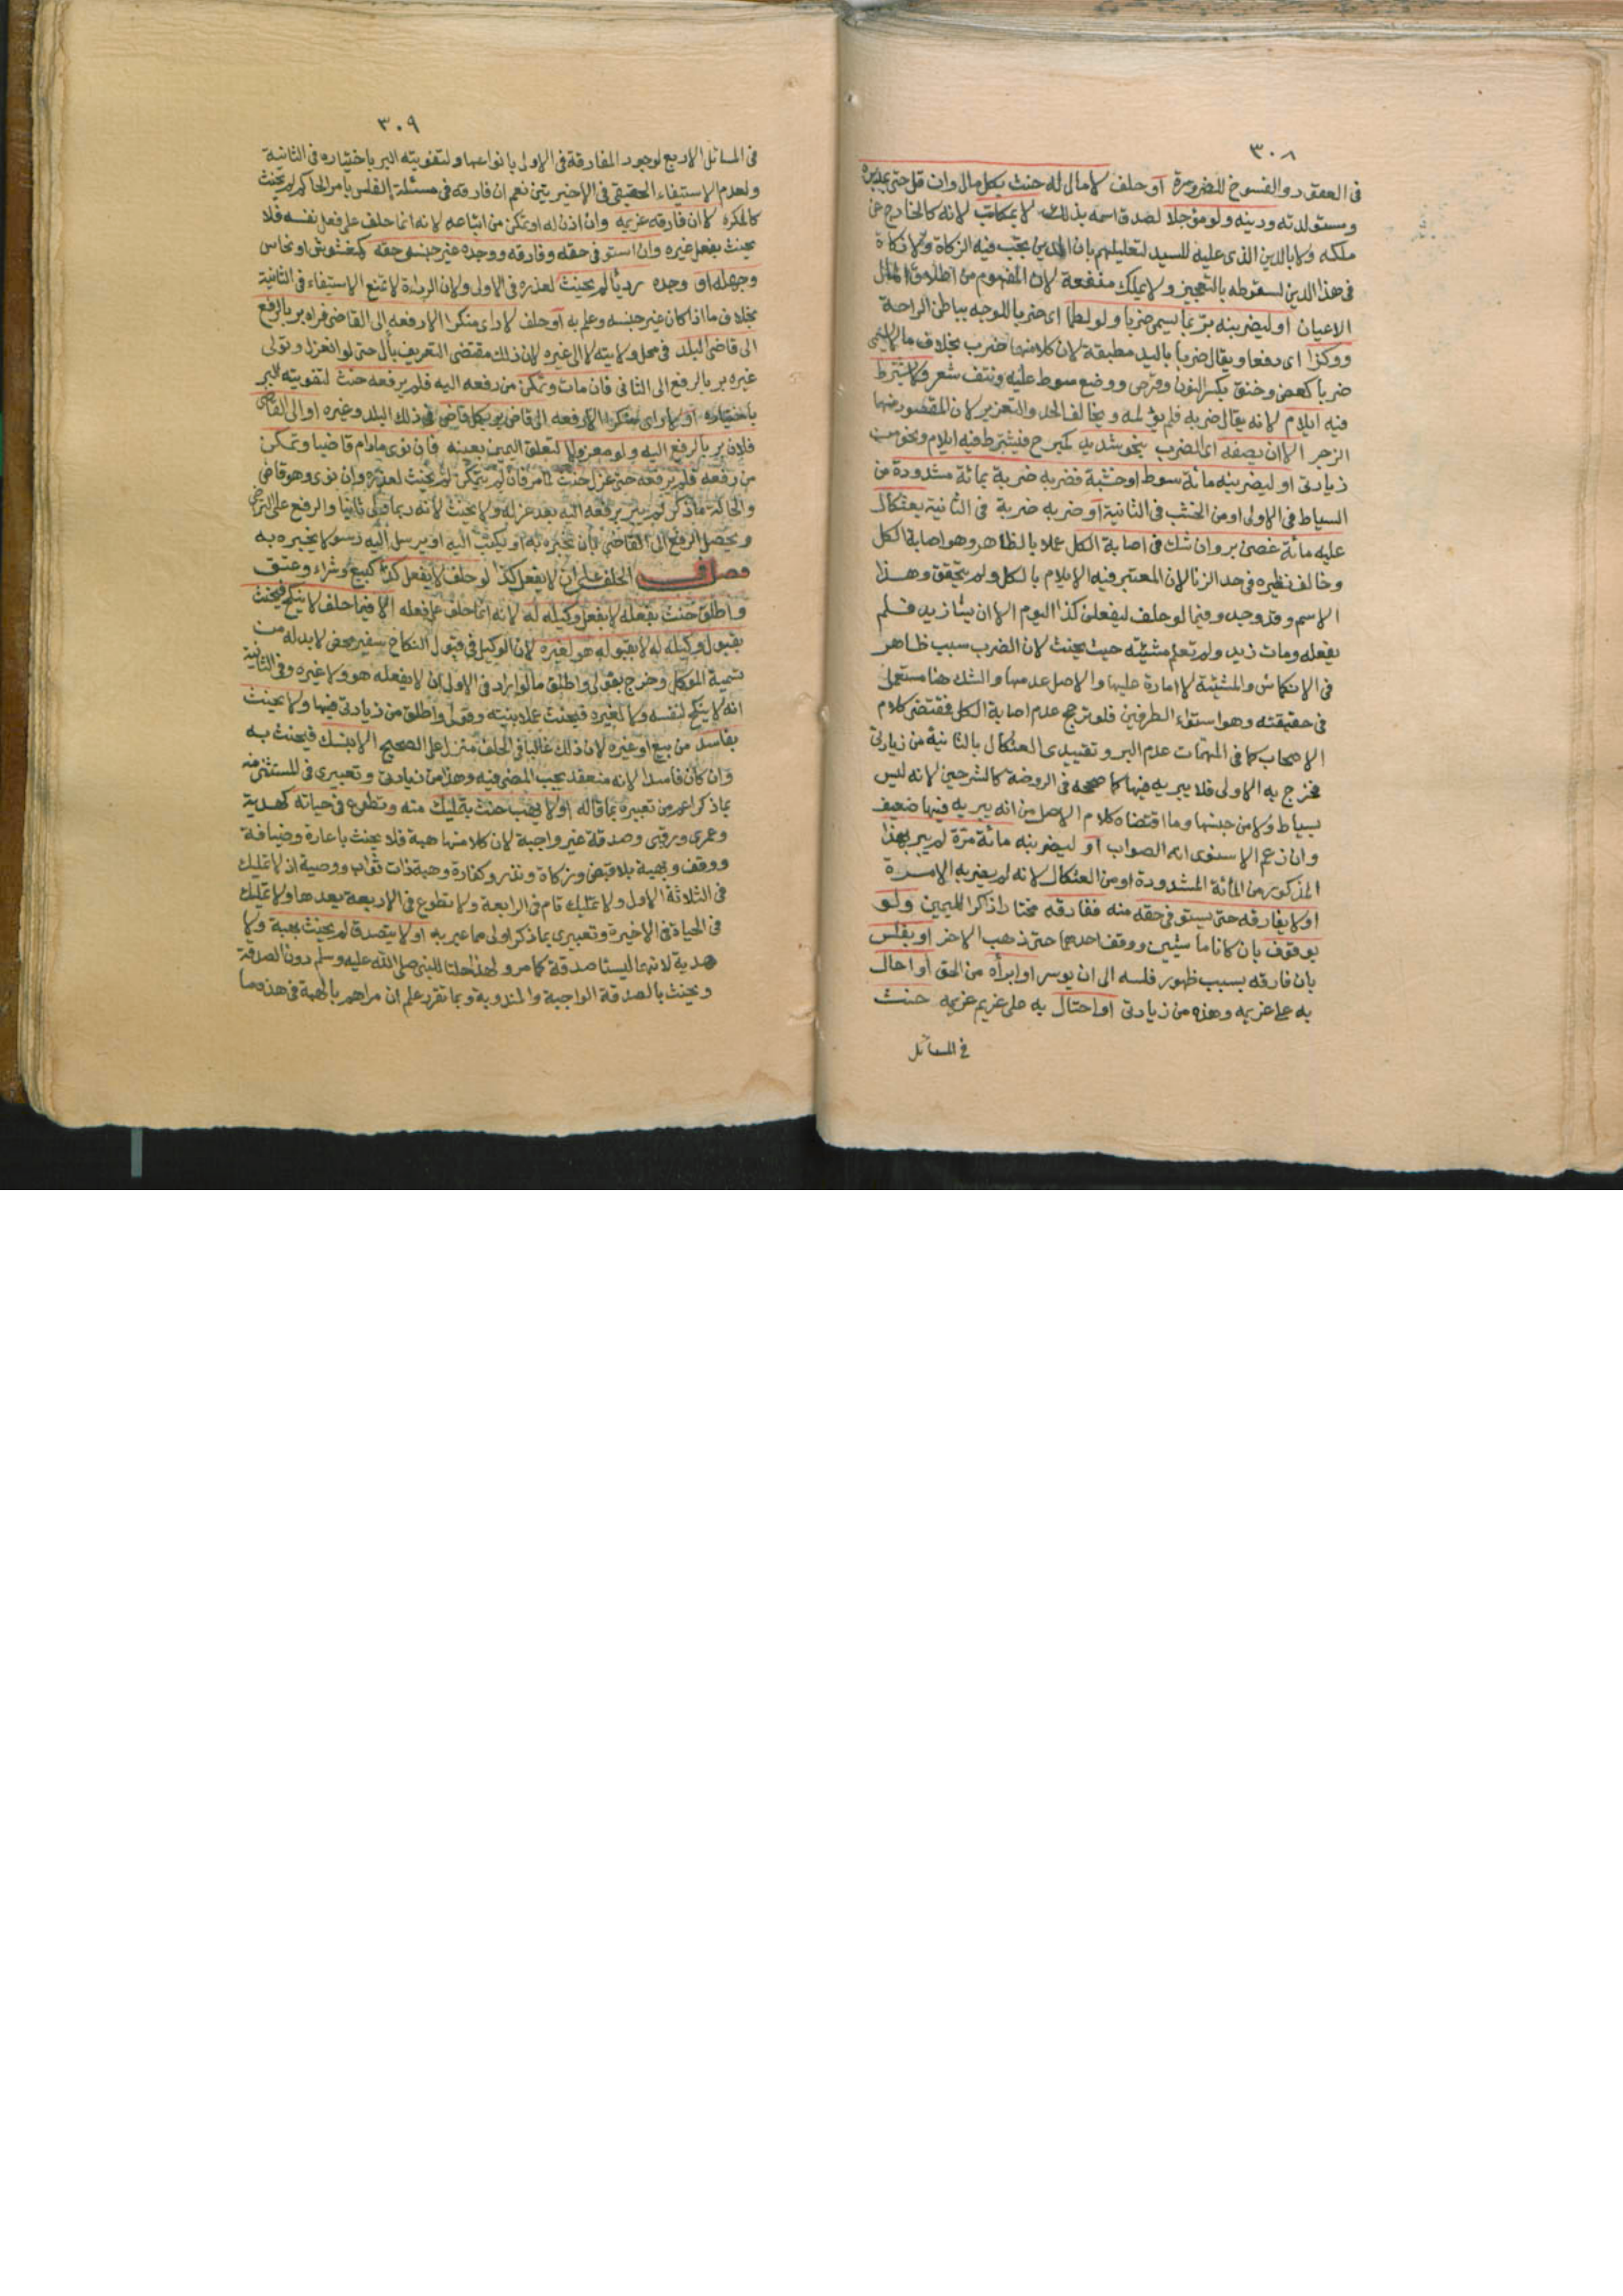 ٣٠٨
في العقود والفسوخ للضرورة أو حلف لا مال له حنث بكل مال وان قل حتى بمدبره
ومستولدته ودينه ولو مؤجلا لصدق اسمه بذلك لا بمكاتب لانه كالخارج عن
ملكه ولا بالدين الذي عليه للسيد لتعليلهم بان الدين يجب فيه الزكاة ولا زكاة
في هذا الدين لسقوطه بالتعجيز ولا بملك منفعة لان المفهوم من اطلاق المال
الاعيان او ليضربنه بر بما يسمى ضربا ولو لطما اي ضربا للوجه بباطن الراحة
ووكزا اي دفعا ويقال ضربا باليد مطبقة لان كلا منها ضرب بخلاف ما لا يسمى
ضربا كعض وخنق بكسر النون وقرص ووضع سوط عليه ونتف شعر ولا يشترط
فيه ايلام لانه يقال ضربه فلم يؤلمه ويخالف الحد والتعزير لان المقصود منهما
الزجر الا ان يصفه اي الضرب بنحو شديد كمبرح فيشترط فيه ايلام ونحو من
زيادتي او ليضربنه مائة سوط او خشبة فضربه ضربة بمائة مشدودة من
السياط في الاولى او من الخشب في الثانية أو ضربه ضربة في الثانية بعثكال
عليه مائة غصن بر وان شك في اصابة الكل عملا بالظاهر وهو اصابة الكل
وخالف نظيره في حد الزنا لان المعتبر فيه الايلام بالكل ولم يتحقق وهذا
الاسم وقد وجد وفيما لو حلف ليفعلن كذا اليوم الا ان يشا زيد فلم
يفعله ومات زيد ولم تعلم مشيئته حيث يحنث لان الضرب سبب ظاهر
في الانكاش والمشيئة لا امارة عليها والاصل عدمها والشك هنا مستعمل
في حقيقته وهو استواء الطرفين فلو ترجح عدم اصابة الكل فمقتضى كلام
الاصحاب كما في المهمات عدم البر وتقييدي العثكال بالثانية من زيادتي
فخرج به الاولى فلا يبر به فيها كما صححه في الروضة كالشرحين لانه ليس
بسياط ولا من جنسها وما اقتضاه كلام الاصل من انه يبر به فيها ضعيف
وان زعم الاسنوي انه الصواب أو ليضربنه مائة مرة لم يبر بهذا
المذكور من المائة المشدودة او من العثكال لانه لم يضربه الا مرة
او لا يفارقه حتى يستوفي حقه منه ففارقه مختارا ذاكرا لليمين ولو
بوقوف بان كانا ماشيين ووقف احدهما حتى ذهب الاخر او بفلس
بان فارقه بسبب ظهور فلسه الى ان يوسر او ابرأه من الحق أو احال
به على غريمه وهذه من زيادتي أو احتال به على غريم غريمه حنث
في المسائل
٣٠٩
في المسائل الاربع لوجود المفارقة في الاولى بانواعها ولتفويته البر باختياره في الثانية
ولعدم الاستيفاء الحقيقي في الاخيرتين نعم ان فارقه في مسئلة الفلس بامر الحاكم لم يحنث
كالمكره لا ان فارقه غريمه وان اذن له او تمكن من اتباعه لانه انما حلف على فعل نفسه فلا
يحنث بفعل غيره وان استوفى حقه وفارقه ووجده غير جنس حقه كمغشوش او نحاس
وجهله أو وجده رديئا لم يحنث لعذره في الاولى ولان الرداءة لا تمنع الاستيفاء في الثانية
بخلاف ما اذا كان غير جنسه وعلم به أو حلف لا راى منكرا الا رفعه الى القاضي فراه بر بالرفع
الى قاضي البلد في محل ولايته لا الى غيره لان ذلك مقتضى التعريف بأل حتى لو انعزل وتولى
غيره بر بالرفع الى الثاني فان مات وتمكن من رفعه اليه فلم يرفعه حنث لتفويته البر
باختياره أو لا راى منكرا الا رفعه الى قاض بر بكل قاض في ذلك البلد وغيره او الى القاضي
فلان بر بالرفع اليه ولو معزولا لتعلق اليمين بعينه فان نوى مادام قاضيا وتمكن
من رفعه فلم يرفعه حتى عزل حنث لما مر فان لم يتمكن لم يحنث لعذره وان نوى وهو قاض
والحالة ما ذكر لم يبر برفعه اليه بعد عزله ولا يحنث لانه ربما ولي ثانيا والرفع على التراخي
ويحصل الرفع الى القاضي بان يخبره به او يكتب اليه او يرسل اليه رسولا يخبره به
فصل في الحلف على ان لا يفعل كذا لو حلف لا يفعل كذا كبيع وشراء وعتق
واطلق حنث بفعله لا بفعل وكيله له لانه انما حلف على فعله الا فيما حلف لا ينكح فيحنث
بقبول وكيله له لا بقبوله هو لغيره لان الوكيل في قبول النكاح سفير محض لا بد له من
تسمية الموكل وخرج بقولي واطلق ما لو اراد في الاولى ان لا يفعله هو ولا غيره وفي الثانية
انه لا ينكح لنفسه ولا لغيره فيحنث عملا بنيته وقولي واطلق من زيادتي فيها ولا يحنث
بفاسد من بيع أو غيره لان ذلك غالبا في الحلف منزل على الصحيح الا بنسك فيحنث به
وان كان فاسدا لانه منعقد يجب المضي فيه وهذا من زيادتي وتعبيري في المستثنى منه
بما ذكر اعم من تعبيره بما قاله او لا يهب حنث بتمليك منه وتطوع في حياته كهدية
وعمرى ورقبى وصدقة غير واجبة لان كلا منها هبة فلا يحنث باعارة وضيافة
ووقف وبهبة بلا قبض وزكاة ونذر وكفارة وهبة ذات ثواب ووصية اذ لا تمليك
في الثلاثة الاول ولا تمليك تام في الرابعة ولا تطوع في الاربعة بعدها ولا تمليك
في الحياة في الاخيرة وتعبيري بما ذكر اولى مما عبر به او لا يتصدق لم يحنث بهبة ولا
هدية لانهما ليستا صدقة كما مر ولهذا حلتا للنبي صلى الله عليه وسلم دون الصدقة
ويحنث بالصدقة الواجبة والمندوبة وبما تقرر علم ان مراهم بالهبة في هذه ما